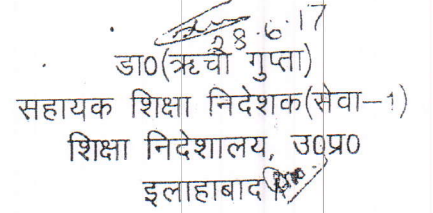 28.6.17
डा0(ऋचा गुप्ता)
सहायक शिक्षा निदेशक(सेवा-1)
शिक्षा निदेशालय, उ0प्र0
इलाहाबाद